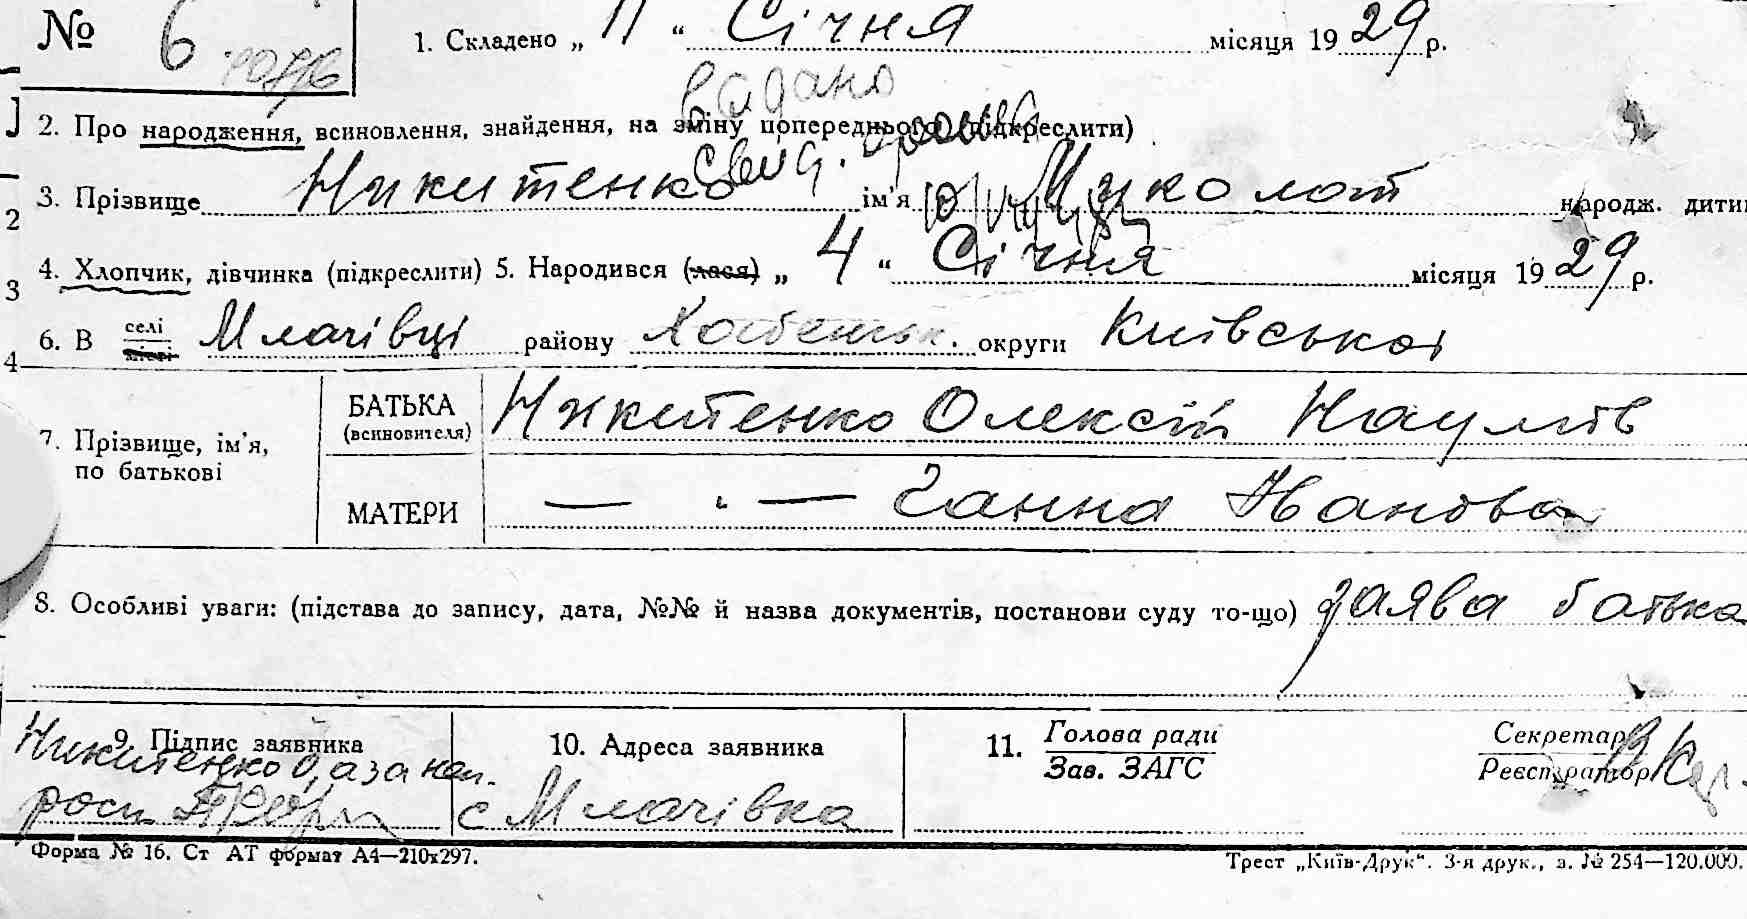 № 6
1. Складено „ 11 “ Січня місяця 19 29 р.
видано
2. Про народження, всиновлення, знайдення, на зміну попереднього (підкреслити)
3. Прізвище Никитенко ім'я Миколай народж. дити
4. Хлопчик, дівчинка (підкреслити) 5. Народився (лася) „ 4 “ Січня місяця 19 29 р.
6. В селі Млачівці району округи Київської
7. Прізвище, ім'я, по батькові
БАТЬКА (всиновителя) Никитенко Олексій Наумів
МАТЕРИ — „ — Ганна Іванова
8. Особливі уваги: (підстава до запису, дата, №№ й назва документів, постанови суду то-що) заява батька
9. Підпис заявника
Никитенко О, а за неп.
росп.
10. Адреса заявника
с Млачівка
11. Голова ради
Зав. ЗАГС
Секретар
Реєстратор
Форма № 16. Ст АТ формат А4—210х297.
Трест „Київ-Друк“. 3-я друк., з. № 254—120.000.